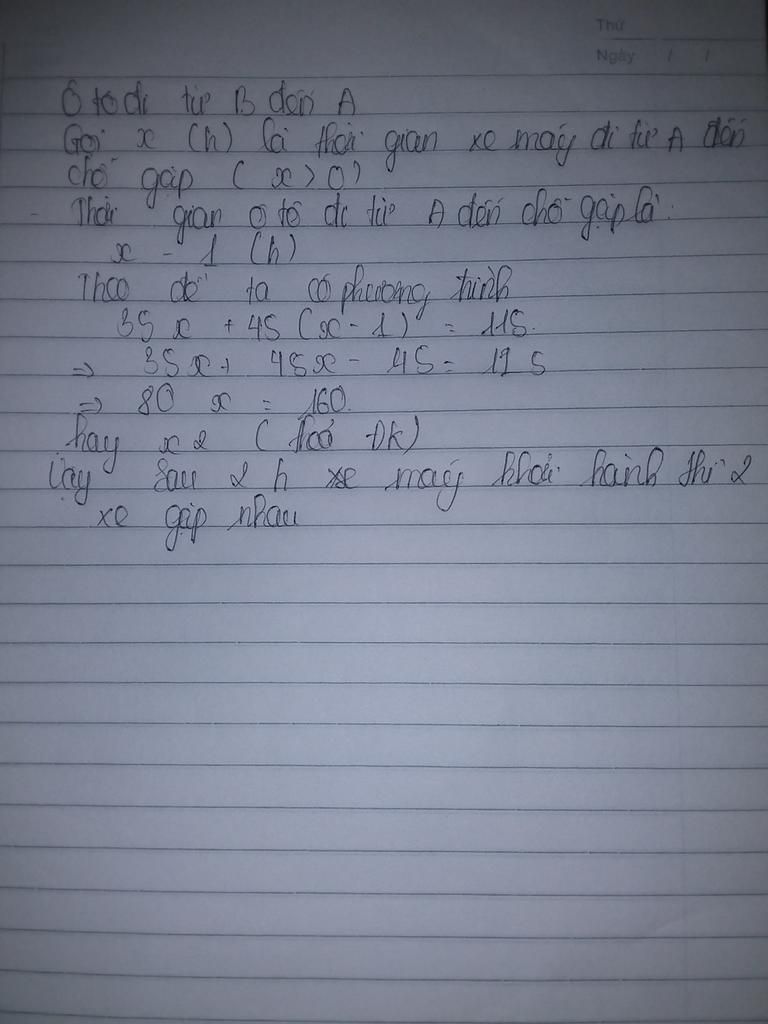 Thứ
Ngày / /
Ô tô đi từ B đến A
Gọi x (h) là thời gian xe máy đi từ A đến
chỗ gặp ( x > 0)
- Thời gian ô tô đi từ A đến chỗ gặp là:
x - 1 (h)
Theo đề ta có phương trình
35 x + 45 (x - 1) = 115.
=> 35x + 45x - 45 = 115
=> 80 x = 160.
hay x 2 ( t/có ĐK)
Vậy sau 2 h xe máy khởi hành thì 2
xe gặp nhau